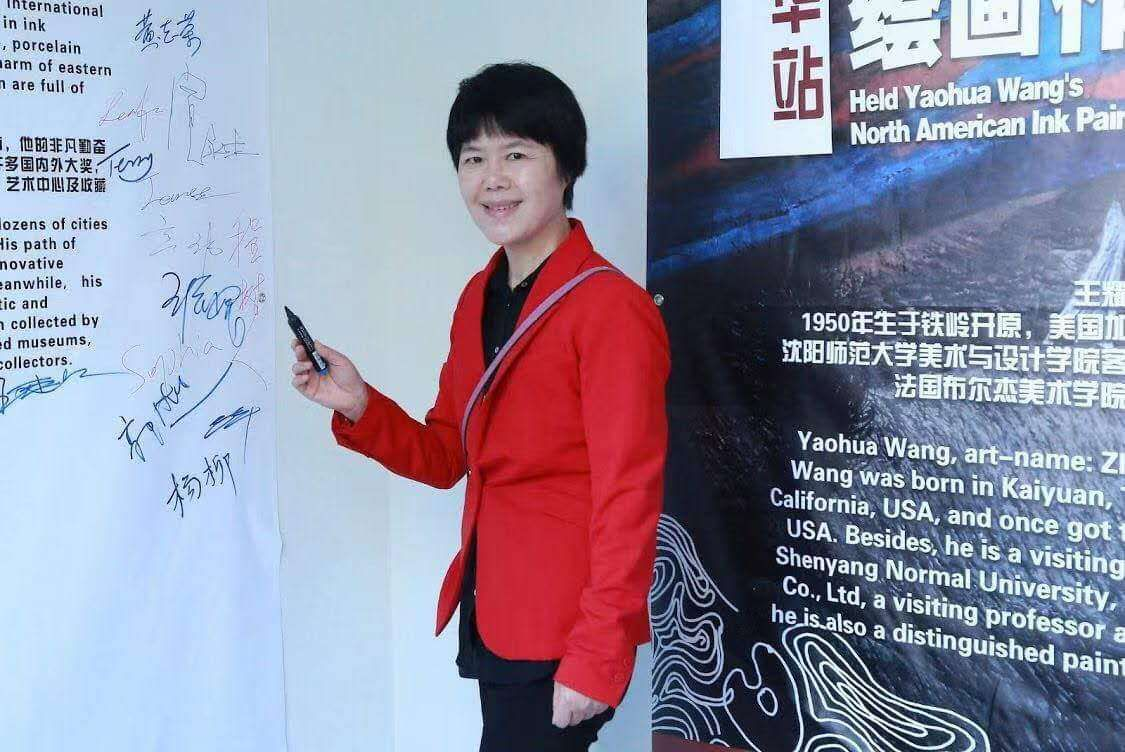 international
in ink
, porcelain
harm of eastern
n are full of
，他的非凡勤奋
许多国内外大奖，
艺术中心及收藏
dozens of cities
His path of
nnovative
eanwhile, his
tic and
n collected by
ed museums,
collectors.
黄志荣
Terry
James
Sophia
杨柳
华站
绘画作
Held Yaohua Wang's
North American Ink Pain
王耀
1950年生于铁岭开原，美国加
沈阳师范大学美术与设计学院客
法国布尔杰美术学院
Yaohua Wang, art-name: Zh
Wang was born in Kaiyuan,
California, USA, and once got t
USA. Besides, he is a visiting
Shenyang Normal University,
Co., Ltd, a visiting professor a
he is also a distinguished paint